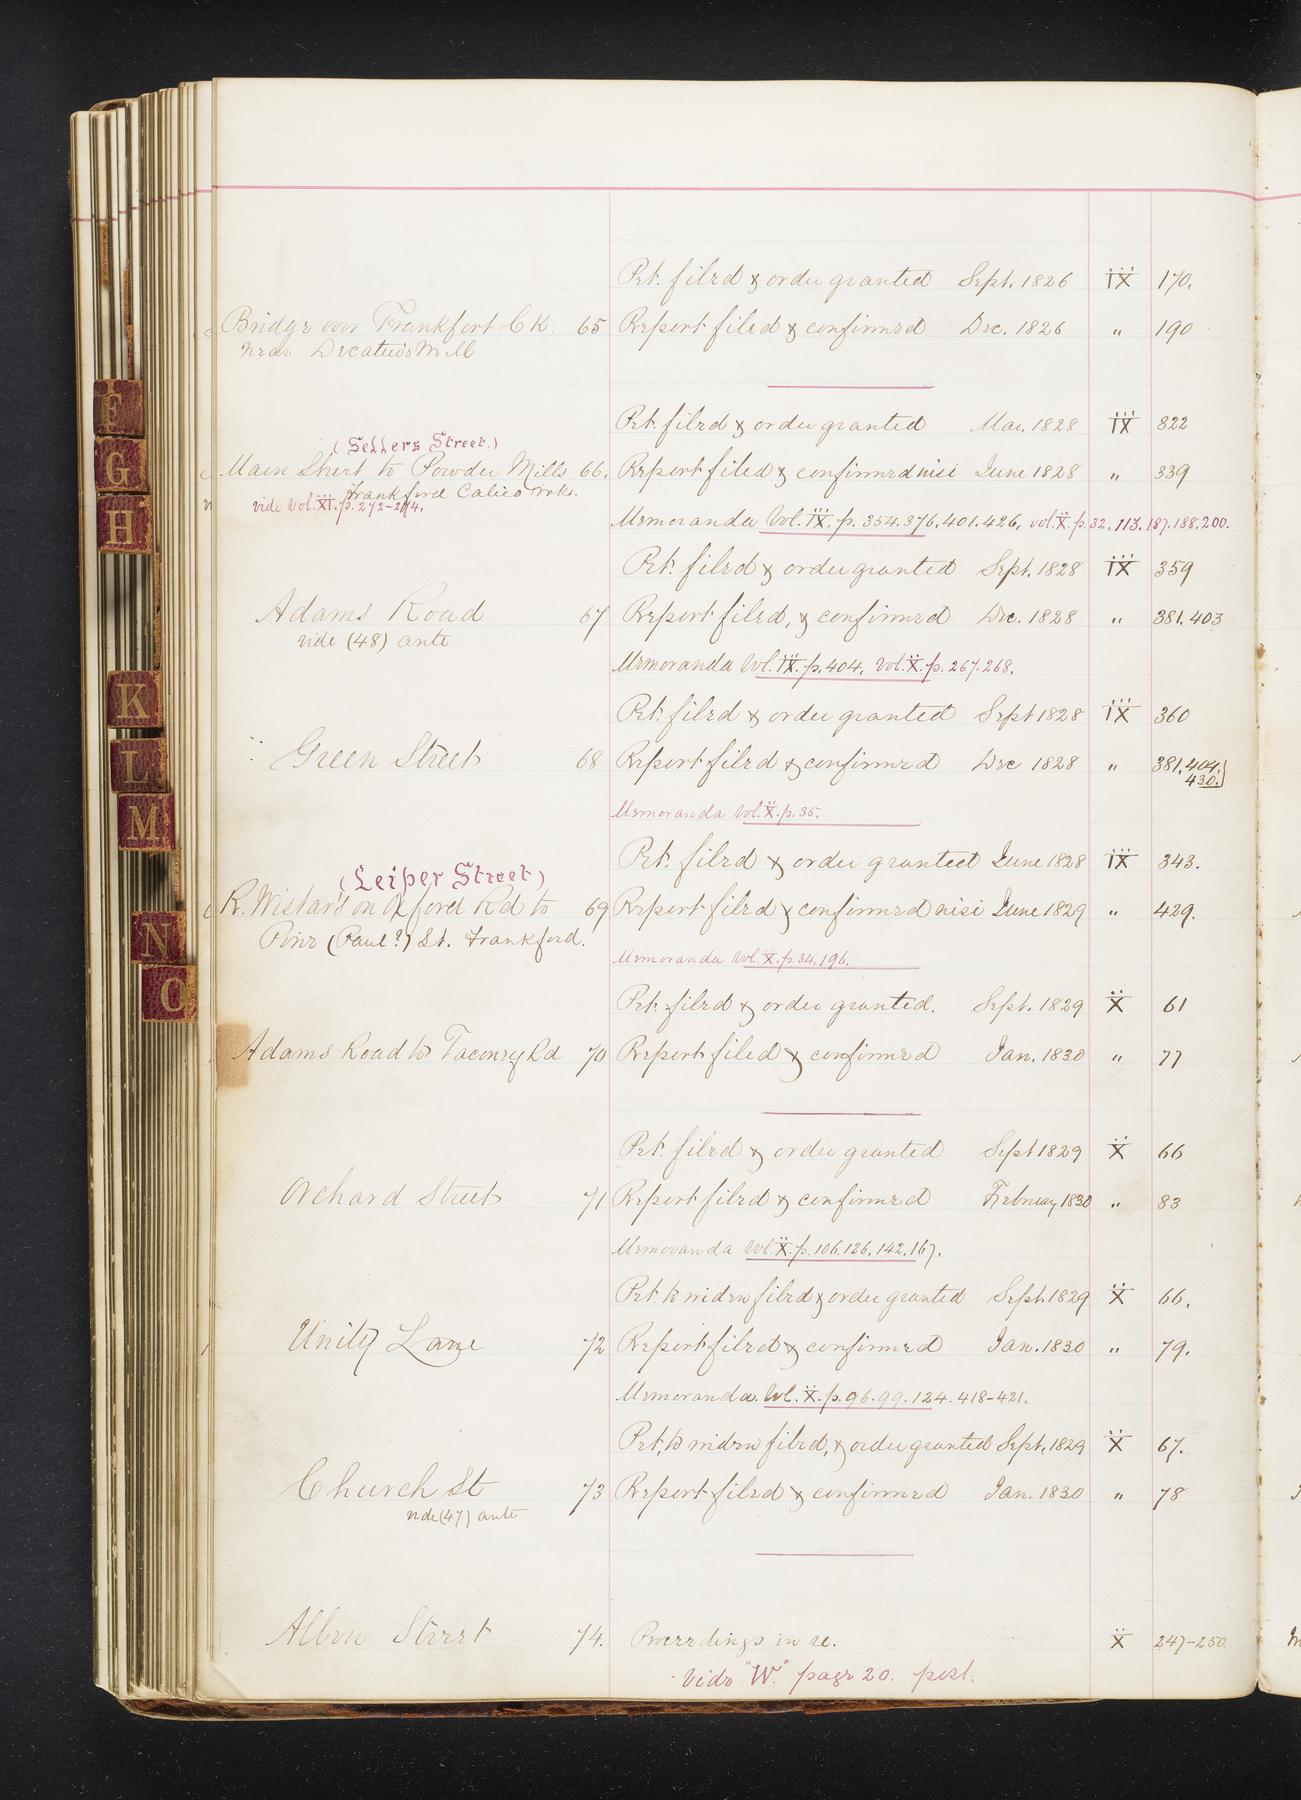 Pet. filed & order granted Sept. 1826 IX 170.
Bridge over Frankfort Ck. 65 Report filed & confirmed Dec. 1826 " 190
near Decatur's Mill
Pet. filed & order granted Mar. 1828 IX 322
(Sellers Street.)
Main Street to Powder Mills 66. Report filed & confirmed nisi June 1828 " 339
Frankford Calico Wks.
vide Vol. XI. p. 272-274.
Memoranda Vol. IX. p. 354. 376. 401. 426. vol. X. p. 32. 113. 187. 188. 200.
Pet. filed & order granted Sept. 1828 IX 359
Adams Road 67 Report filed, & confirmed Dec. 1828 " 381. 403
vide (48) ante
Memoranda Vol. IX. p. 404. Vol. X. p. 267. 268.
Pet. filed & order granted Sept 1828 IX 360
Green Street 68 Report filed & confirmed Dec 1828 " 381. 404.
430.
Memoranda Vol. X. p. 35.
Pet. filed & order granted June 1828 IX 343.
(Leiper Street)
R. Wistar's on Oxford Rd to 69 Report filed & confirmed nisi June 1829 " 429.
Pine (Paul?) St. Frankford.
Memoranda Vol. X. p. 34. 196.
Pet. filed & order granted. Sept. 1829 X 61
Adams Road to Tacony Rd 70 Report filed & confirmed Jan. 1830 " 77
Pet. filed & order granted Sept 1829 X 66
Orchard Street 71 Report filed & confirmed February 1830 " 83
Memoranda Vol. X. p. 106. 126. 142. 167.
Pet. to widen filed & order granted Sept. 1829 X 66.
Unity Lane 72 Report filed & confirmed Jan. 1830 " 79.
Memoranda. Vol. X. p. 96. 99. 124. 418-421.
Pet. to widen filed, & order granted Sept. 1829 X 67.
Church St 73 Report filed & confirmed Jan. 1830 " 78
vide (47) ante
Street 74. Proceedings in re. X 247-250
Vide "W." page 20. post.
F
G
H
K
L
M
N
O